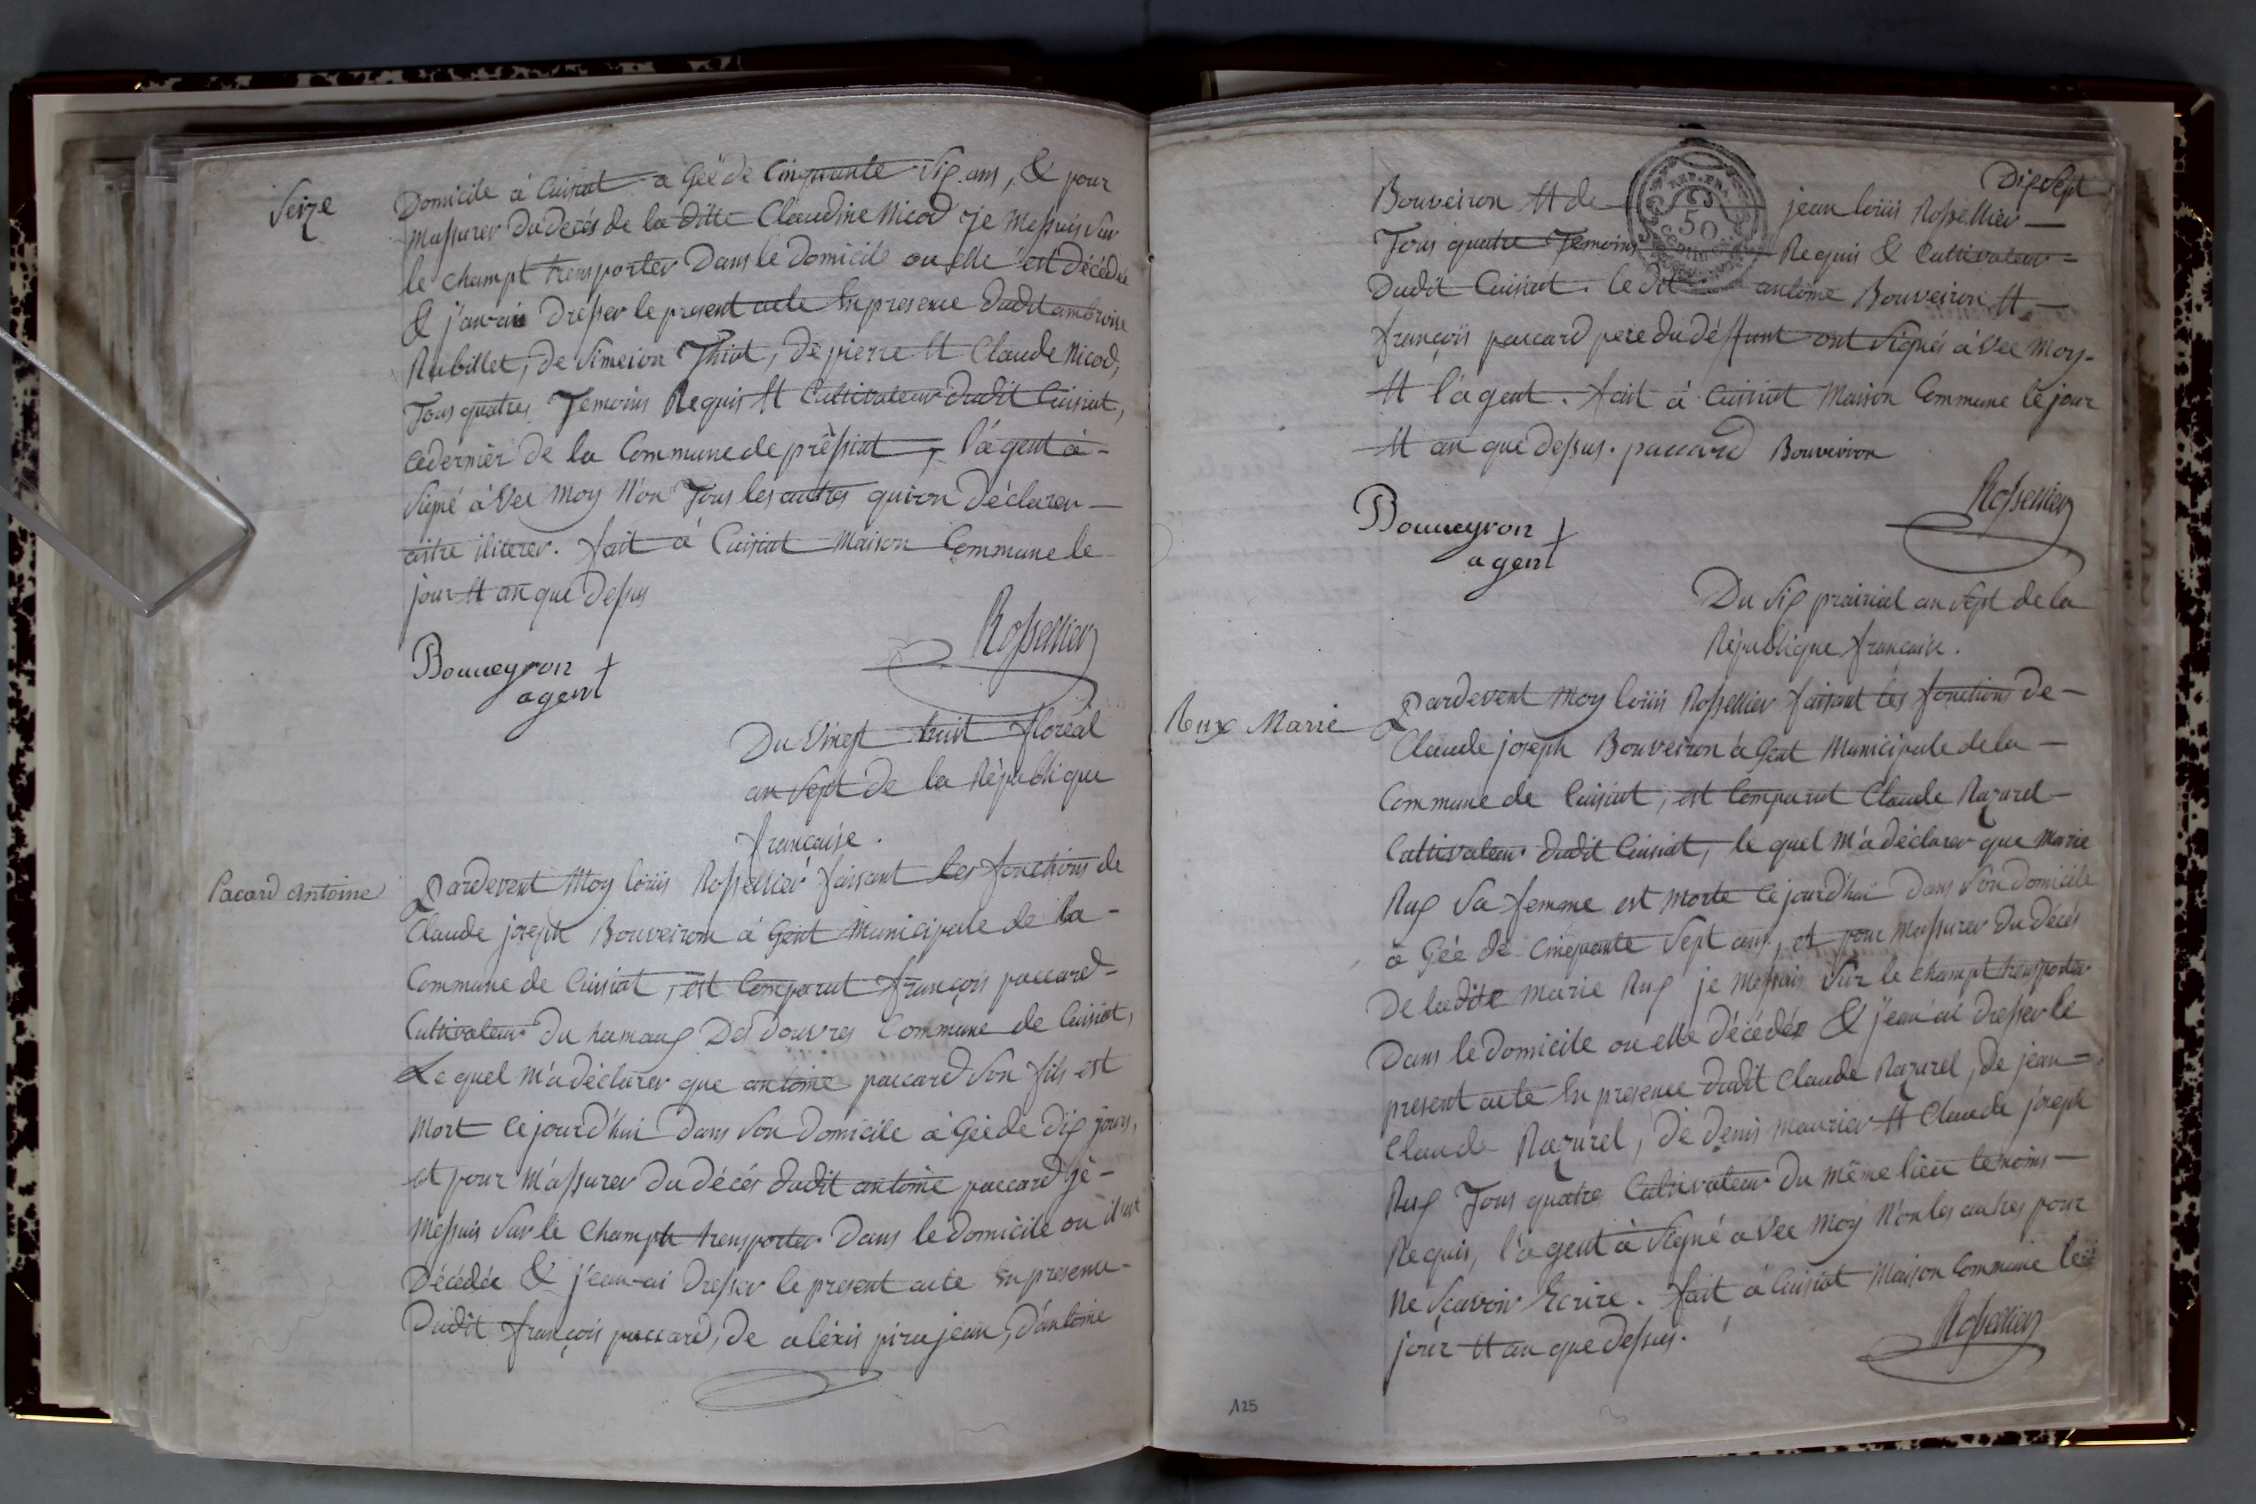 Seize
Domicile à Cuisiat à Géé de Cinquante Six ans, & pour
massurer du decés de la ditte Claudine Nicod je messuis sur
le champt transporter Dans le Domicile ou elle est Décédée
& j'an ai Dresser le present acte En presence dudit ambroise
Rubillet, de Simeion Thiat, de pierre et Claude Nicod,
Tous quatres Temoins Requis et Cultivateur dudit Cuisiat,
cedernier de la Commune de prèssiat, l'agent à
Signé àVec Moy Non Tous les autres quion Déclarer
aistre iliterer. fait à Cuisiat Maison Commune le
jour et an que Dessus
Rossellier
Bouueyron
agent
Du Vingt huit floréal
an Sept de la République
française.
Pacard Antoine
Pardevent Moy loüis Rossellier faisant les fonctions de
Claude joseph Bouveiron à Gent Municipale de la
Commune de Cuisiat, est Comparut françois paccard
Cultivateur du hamaux Des douvres Commune de Cuisiat,
Le quel m'a déclarer que antoine paccard Son fils est
Mort Cejourd'hui Dans Son Domicile à Géé de Dix jours,
et pour M'assurer du décés dudit antoine paccard je
Messuis Sur le Champt transporter Dans le Domicile ou il est
Décédée & j'ean ai Dresser le present acte En presence
Dudit françois paccard, de aléxis pirajean, d'antoine
Dix Sept
Bouveiron et de jean loüis Rossellier
Tous quatre Temoins Requis & Cultivateur
Dudit Cuisiat. le dit antoine Bouveiron et
françois paccard pere du déffunt ont Signés àVec Moy
et l'agent. fait à Cuisiat Maison Commune le jour
et an que Dessus. paccard Bouveiron
Rossellier
Bouueyron
agent
Du Six prairial an Sept de la
République française.
Rux Marie
Pardevent Moy loüis Rossellier faisant les fonctions de
Claude joseph Bouveiron à Gent Municipale de la
Commune de Cuisiat, est Comparut Claude Razurel
Cultivateur dudit Cuisiat, le quel M'à déclarer que Marie
Rux Sa femme est Morte Cejourd'hui Dans Son domicile
à Géé de Cinquante Sept ans, et pour Massurer du décés
De ladite Marie Rux je Messuis Sur le champt transporter
Dans le Domicile ou elle décédée & j'ean ai dresser le
present acte En presence dudit Claude Razurel, de jean
Claude Razurel, de denis Maurier et Claude joseph
Rux Tous quatres Cultivateur du même lieu temoins
Requis, l'agent à Signé àVec Moy Non les autres pour
Ne Sçavoir Ecrire. fait à Cuisiat Maison Commune le
jour et an que dessus.
Rossellier
125